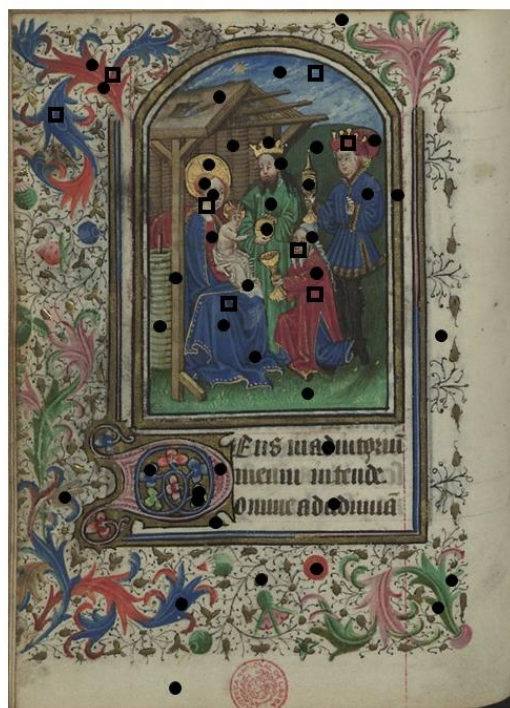 DEus in adiutoriū
meum intende.
Domine ad adiuuā